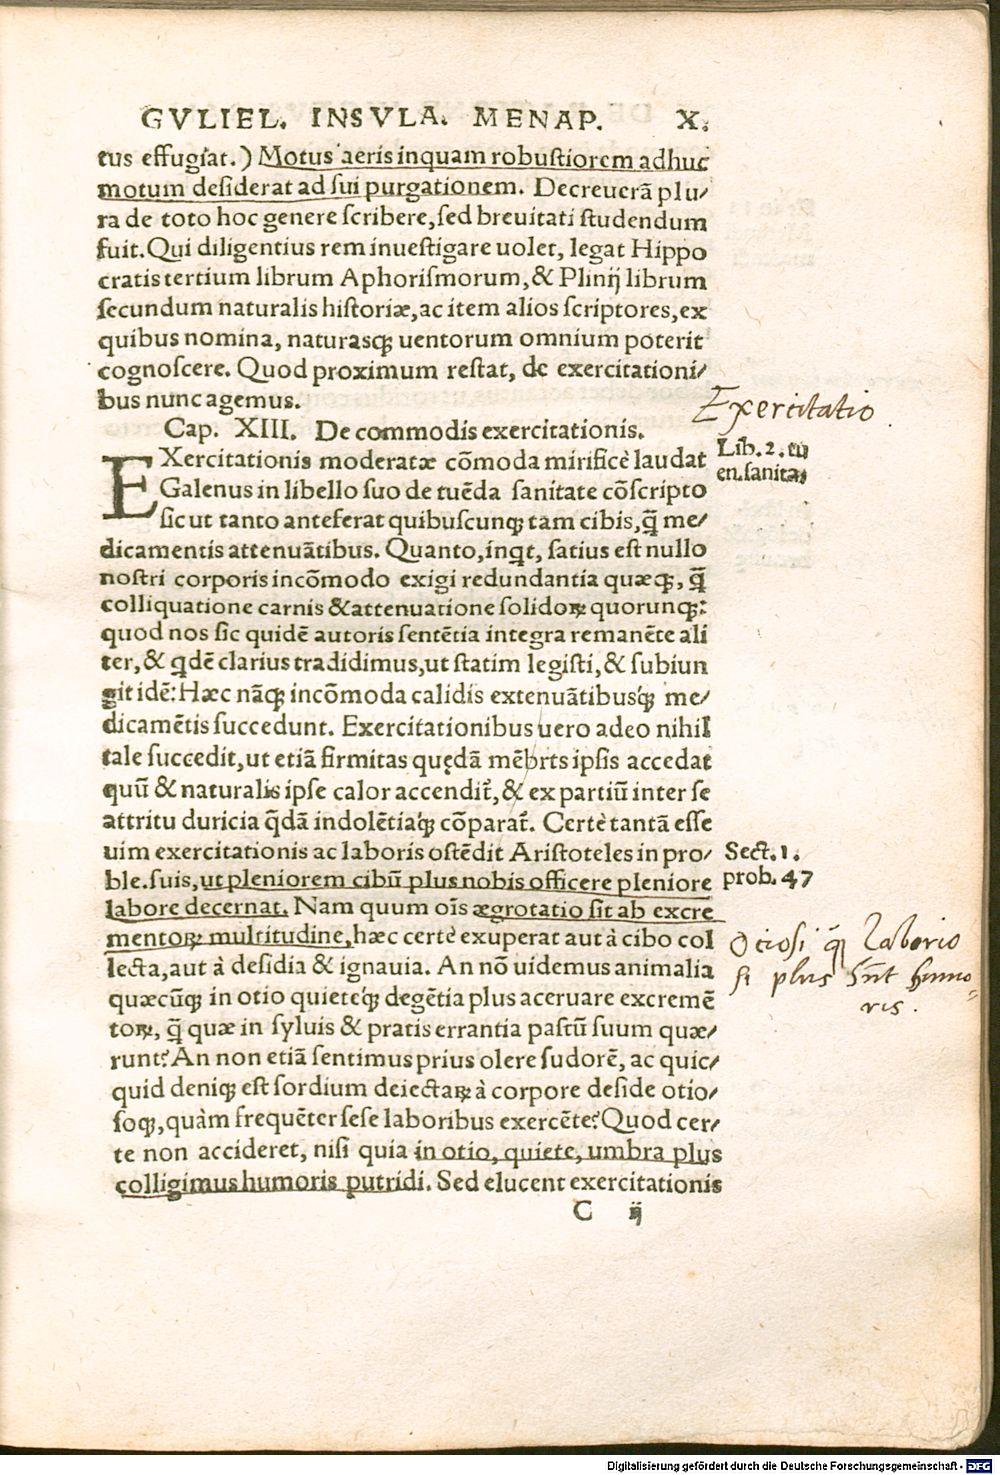 GVLIEL. INSVLA. MENAP. X.
tus effugiat.) Motus aeris inquam robuſtiorem adhuc
motum deſiderat ad ſui purgationem. Decreuerã plu/
ra de toto hoc genere ſcribere, ſed breuitati ſtudendum
fuit. Qui diligentius rem inueſtigare uolet, legat Hippo
cratis tertium librum Aphoriſmorum, & Plinij librum
ſecundum naturalis hiſtoriæ, ac item alios ſcriptores, ex
quibus nomina, naturasq; uentorum omnium poterit
cognoſcere. Quod proximum reſtat, de exercitationi/
bus nunc agemus.
Exercitatio
Cap. XIII. De commodis exercitationis.
EXercitationis moderatæ cõmoda mirificè laudat
Galenus in libello ſuo de tuẽda ſanitate cõſcripto
ſic ut tanto anteferat quibuſcunq; tam cibis, q̃ me/
Lib. 2. tu
en. ſanita;
dicamentis attenuãtibus. Quanto, inqt, ſatius eſt nullo
noſtri corporis incõmodo exigi redundantia quæq;, q̃
colliquatione carnis & attenuatione ſolidoꝝ quorunq;:
quod nos ſic quidẽ autoris ſentẽtia integra remanẽte ali
ter, & qdẽ clarius tradidimus, ut ſtatim legiſti, & ſubiun
git idẽ: Hæc nãq; incõmoda calidis extenuãtibusq́; me/
dicamẽtis ſuccedunt. Exercitationibus uero adeo nihil
tale ſuccedit, ut etiã firmitas quędã mẽbris ipſis accedat
quũ & naturalis ipſe calor accendit̃, & ex partiũ inter ſe
attritu duricia q̃dã indolẽtiaq́; cõparat̃. Certè tantã eſſe
uim exercitationis ac laboris oſtẽdit Ariſtoteles in pro/
ble. ſuis, ut pleniorem cibũ plus nobis officere pleniore
Sect. 1.
prob. 47
labore decernat. Nam quum oı̃s ægrotatio ſit ab excre
mentoꝝ multitudine, hæc certè exuperat aut à cibo col
lecta, aut à deſidia & ignauia. An nõ uidemus animalia
Otiosi q̃ Laborio
si plus sũt humo-
ris.
quæcũq; in otio quieteq́; degẽtia plus aceruare excremẽ
toꝝ, q̃ quæ in ſyluis & pratis errantia paſtũ ſuum quæ/
runt? An non etiã ſentimus prius olere ſudorẽ, ac quic/
quid deniq; eſt ſordium deiectaꝝ à corpore deſide otio/
ſoq;, quàm frequẽter ſeſe laboribus exercẽte? Quod cer/
te non accideret, niſi quia in otio, quiete, umbra plus
colligimus humoris putridi. Sed elucent exercitationis
C ij
Digitalisierung gefördert durch die Deutsche Forschungsgemeinschaft - DFG